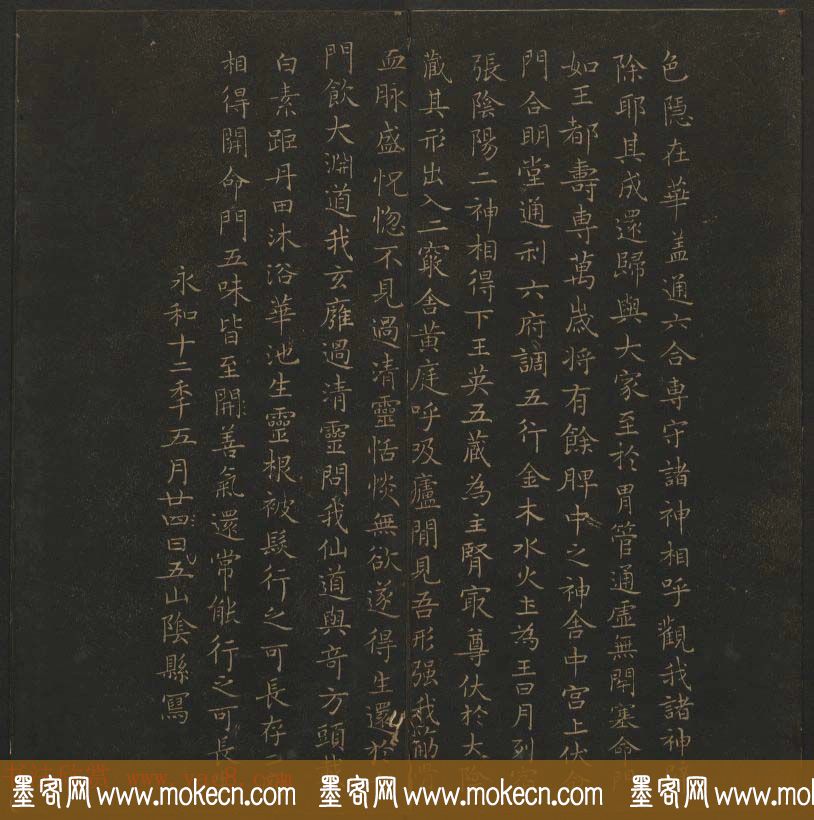 色隱在華盖通六合専守諸神相呼觀我諸神
除耶其成還歸與大家至於胃管通虛無閇塞命門
如王都壽専萬歲将有餘脾中之神舍中宮上伏命
門合明堂通利六府調五行金木水火土為王日月列宿
張陰陽二神相得下王英五藏為主腎㝡尊伏於大陰
藏其形出入二竅舍黃庭呼吸廬間見吾形强我筋骨
血脉盛怳惚不見過清靈恬惔無欲遂得生還於
門飲大淵道我玄雍過清靈問我仙道與奇方頭
白素距丹田沐浴華池生靈根被髮行之可長存二
相得開命門五味皆至開善氣還常能行之可長
永和十二年五月廿四日五山陰縣寫
墨客网 www.mokecn.com 墨客网 www.mokecn.com 墨客网 www.moke